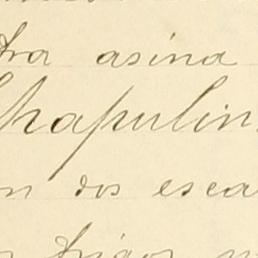 tra asina
Chapulin
n dos esca